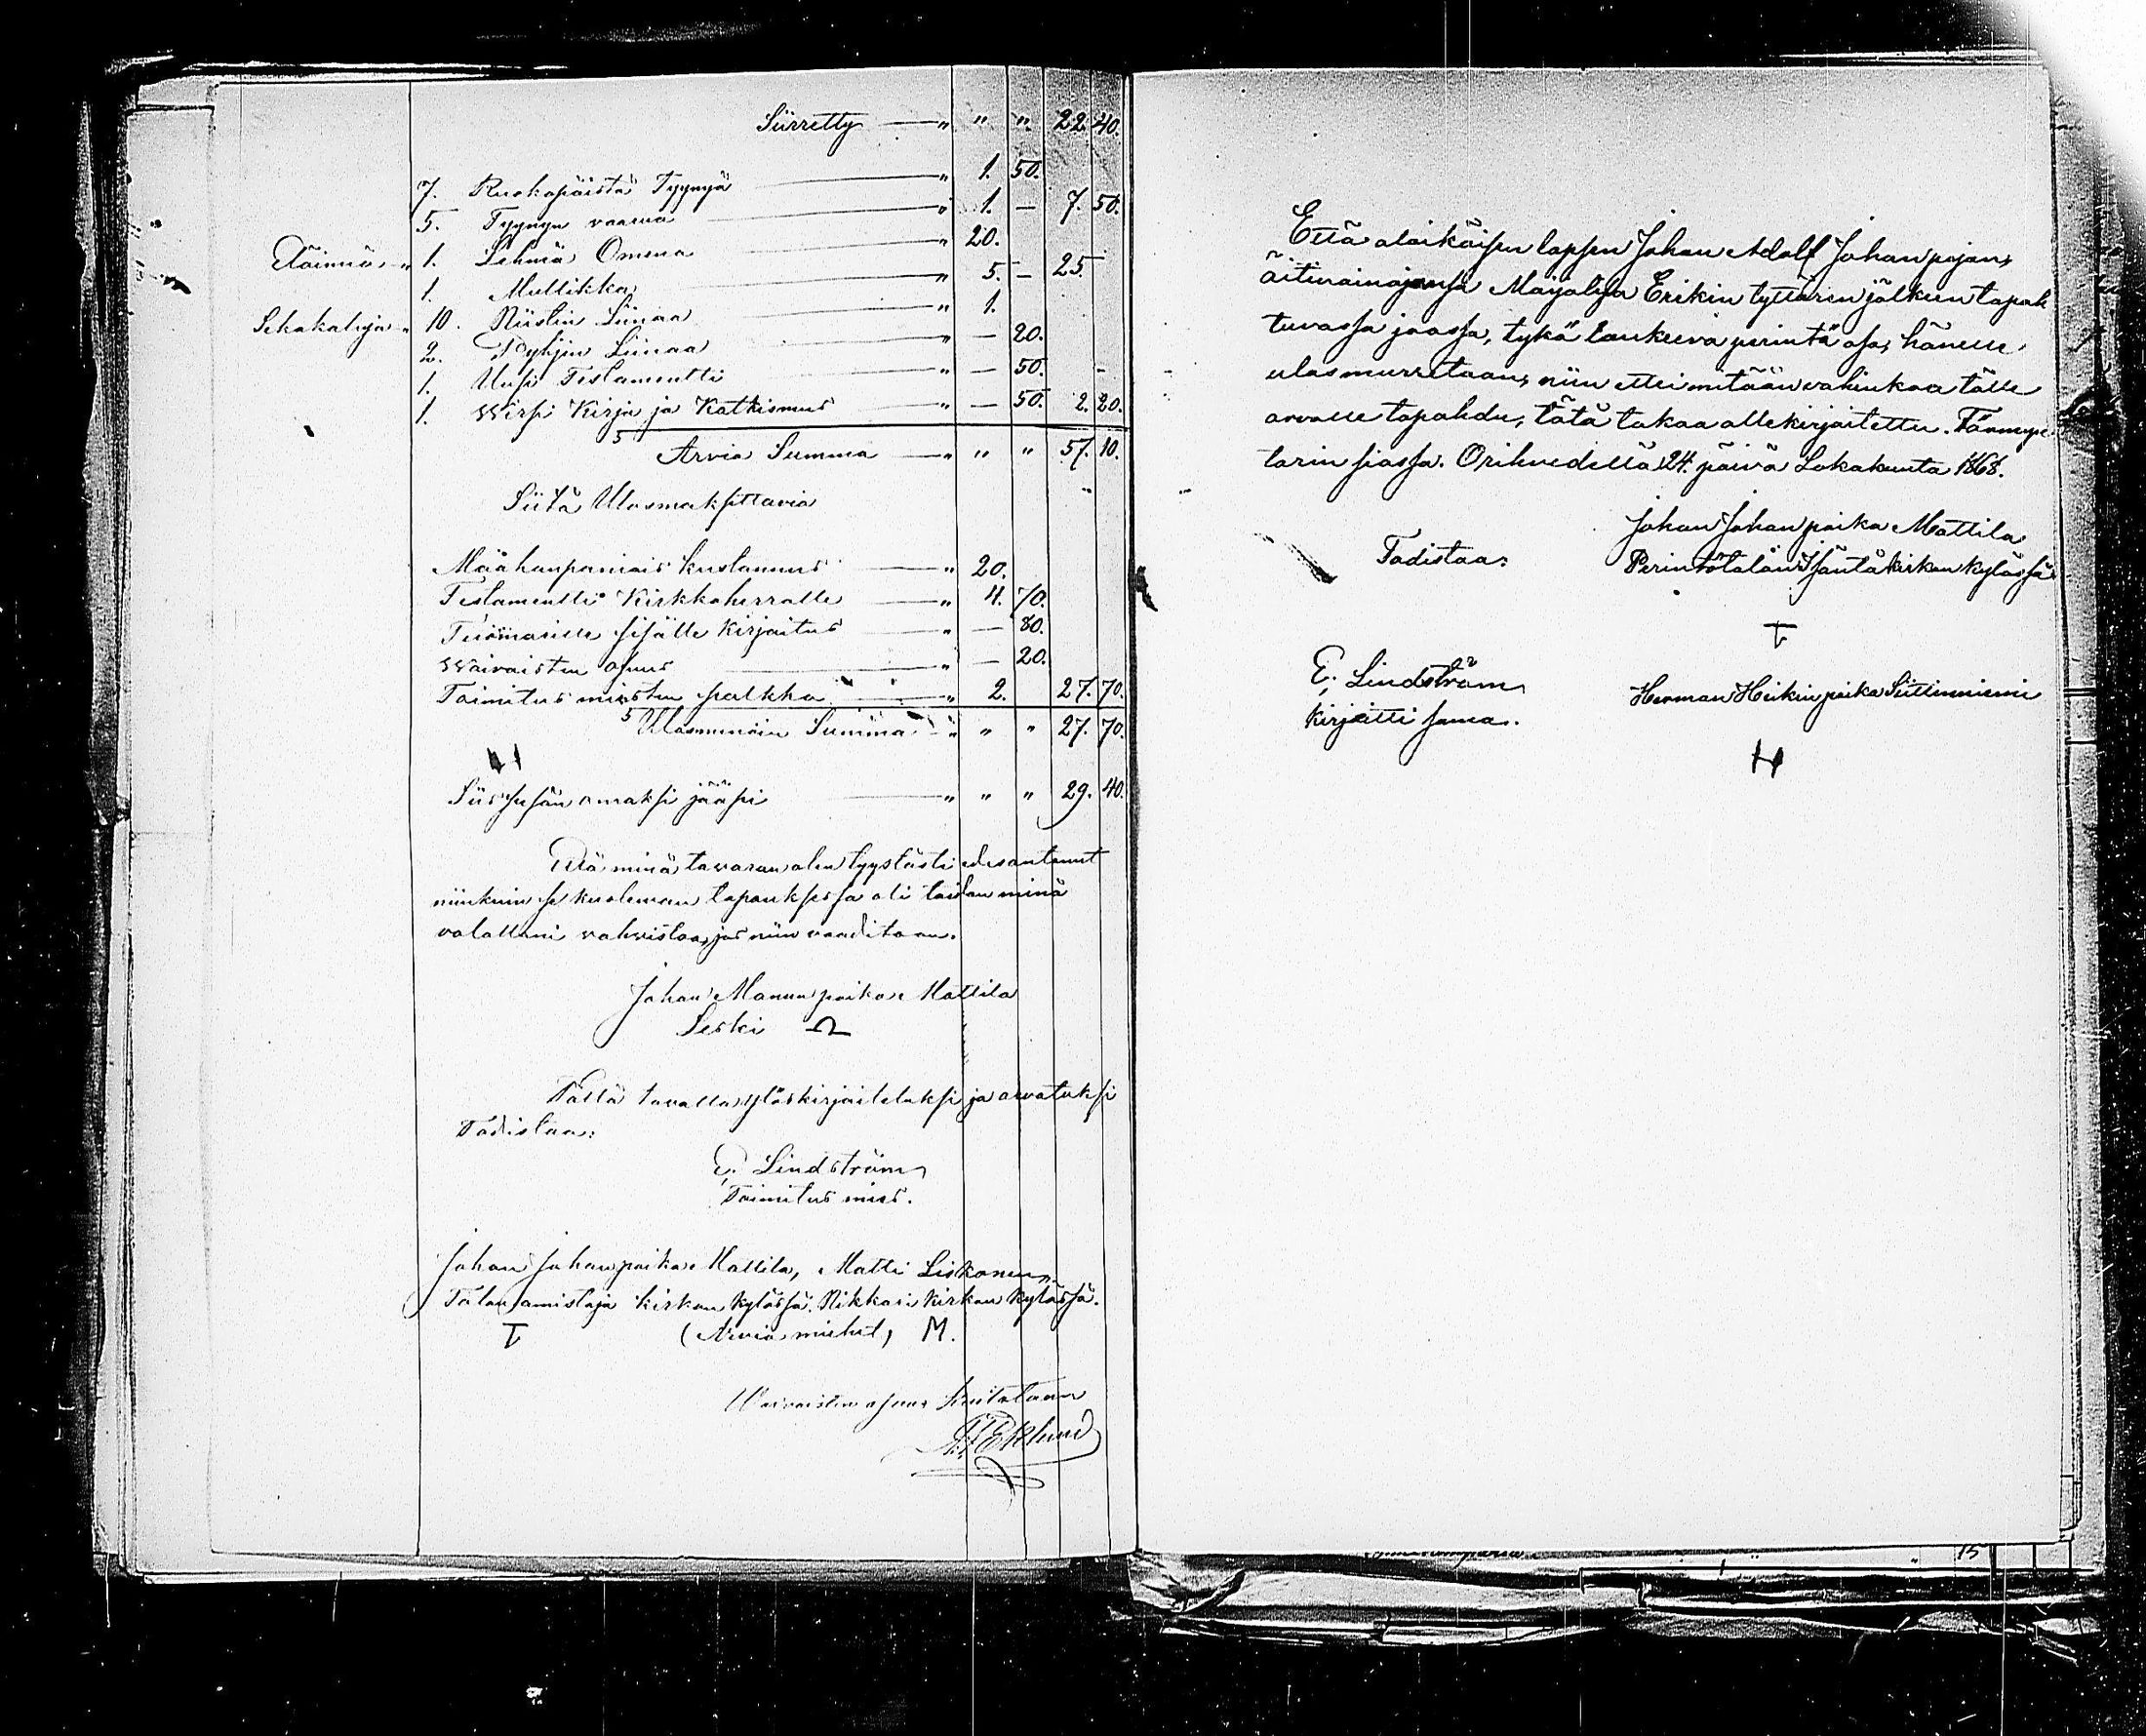 Siirretty — " " " 22. 40.
7. Ruokopäistä Tyynyä — " 1. 50.
5. Tyynyn vaarua — " 1. — 7. 50.
Eläimiä " 1. Lehmä Omena — " 20.
1. Mullikka — " 5. — 25.
Sekakaluja " 10. Niistin Liinaa — " 1.
2. Pyhjin Liinaa — " — 20.
1. Uusi Testamentti — " — 50. -
1. Wirsi Kirja ja Katkismus — " — 50. 2. 20.
Arvia Summa — " " " 57. 10.
Siitä Ulosmaksittavia
Määhanpaniais kustannus — " 20.
Testamentti Kirkkoherralle — " 4. 70.
Tuomarille sisälle kirjoitus — " — 80.
Waivaisten osuus — " — 20.
Toimitus miesten palkka — " 2. 27. 70.
Ulosmenoin Summa " " " 27. 70.
Siis pesän omaksi jääpi — " " " 29. 40.
Että minä tavaran olen tyystästi edesantanut
niinkuin se kuoleman tapauksessa oli taidan minä
valallani vahvistaa, jos niin vaaditaan.
Johan Manun poika Mattila
Leski
Tällä tavalla ylöskirjoitetuksi ja arvatuksi
Todistaa:
E. Lindström
Toimitus mies.
Johan Johanpoika Mattila, Matti Liskonen
Talon omistaja kirkon kylässä. Nikkari Kirkon kylässä.
T (Arvio miehet) M.
Waivaisten osuus kuitataan
Eklund
Että alaikäisen lapsen Johan Adolf Johanpojan,
äitivainajansa Maijalisa Erikin tyttären jälkeen tapah
tuvassa jaossa, tykö lankeeva perintö osa, hänelle
ulosmurretaan, niin ettei mitään vahinkoa tälle
arvolle tapahdu, tätä takaa allekirjoitettu. Tämmpe-
tarin siassa. Orihvedellä 24. päivä Lokakuuta 1868.
Johan Johan poika Mattila
Todistaa: Perintötalon Isäntä kirkon kylässä
T
E. Lindström Herman Heikin poika Siitinniemi
kirjoitti sama.
H
15